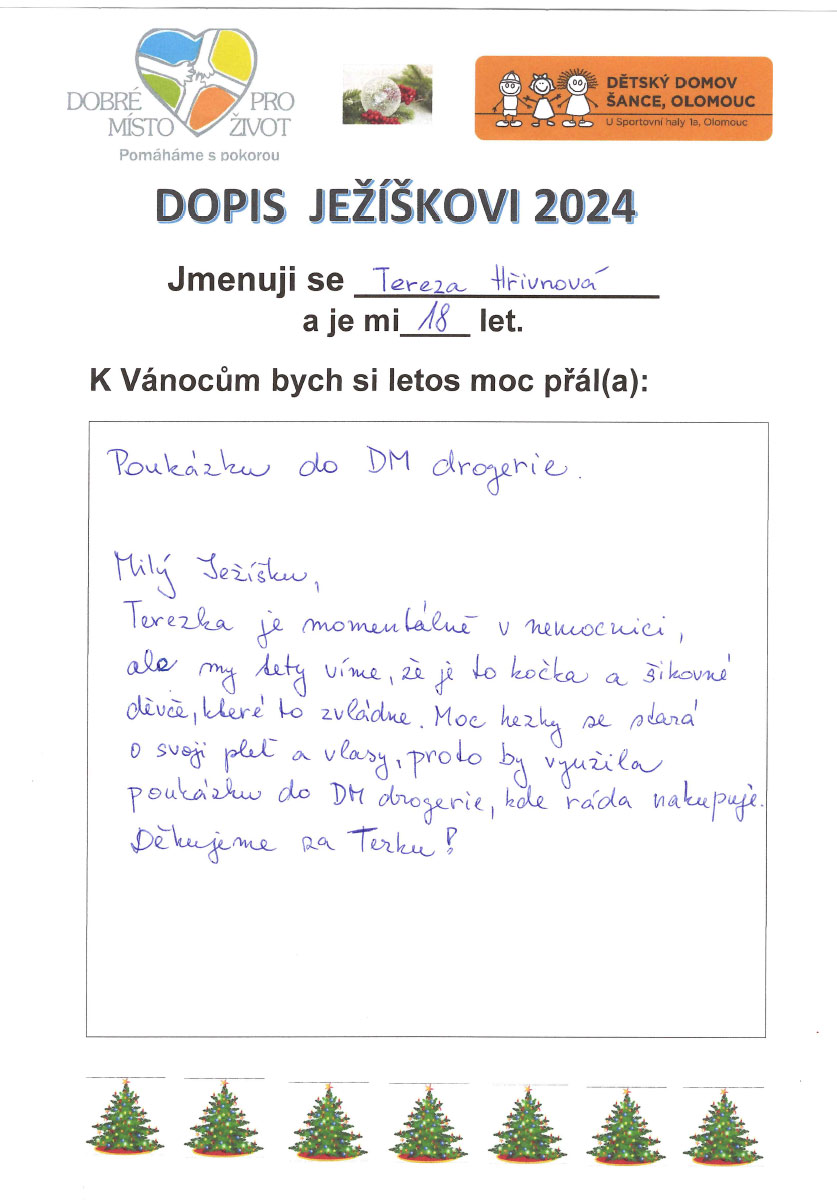 DOBRÉ PRO
MÍSTO ŽIVOT
Pomáháme s pokorou
DĚTSKÝ DOMOV
ŠANCE, OLOMOUC
U Sportovní haly 1a, Olomouc
DOPIS JEŽÍŠKOVI 2024
Jmenuji se Tereza Hřivnová
a je mi 18 let.
K Vánocům bych si letos moc přál(a):
Poukázku do DM drogerie.
Milý Ježíšku,
Terezka je momentálně v nemocnici,
ale my tety víme, že je to kočka a šikovné
děvče, které to zvládne. Moc hezky se stará
o svoji pleť a vlasy, proto by využila
poukázku do DM drogerie, kde ráda nakupuje.
Děkujeme za Terku!